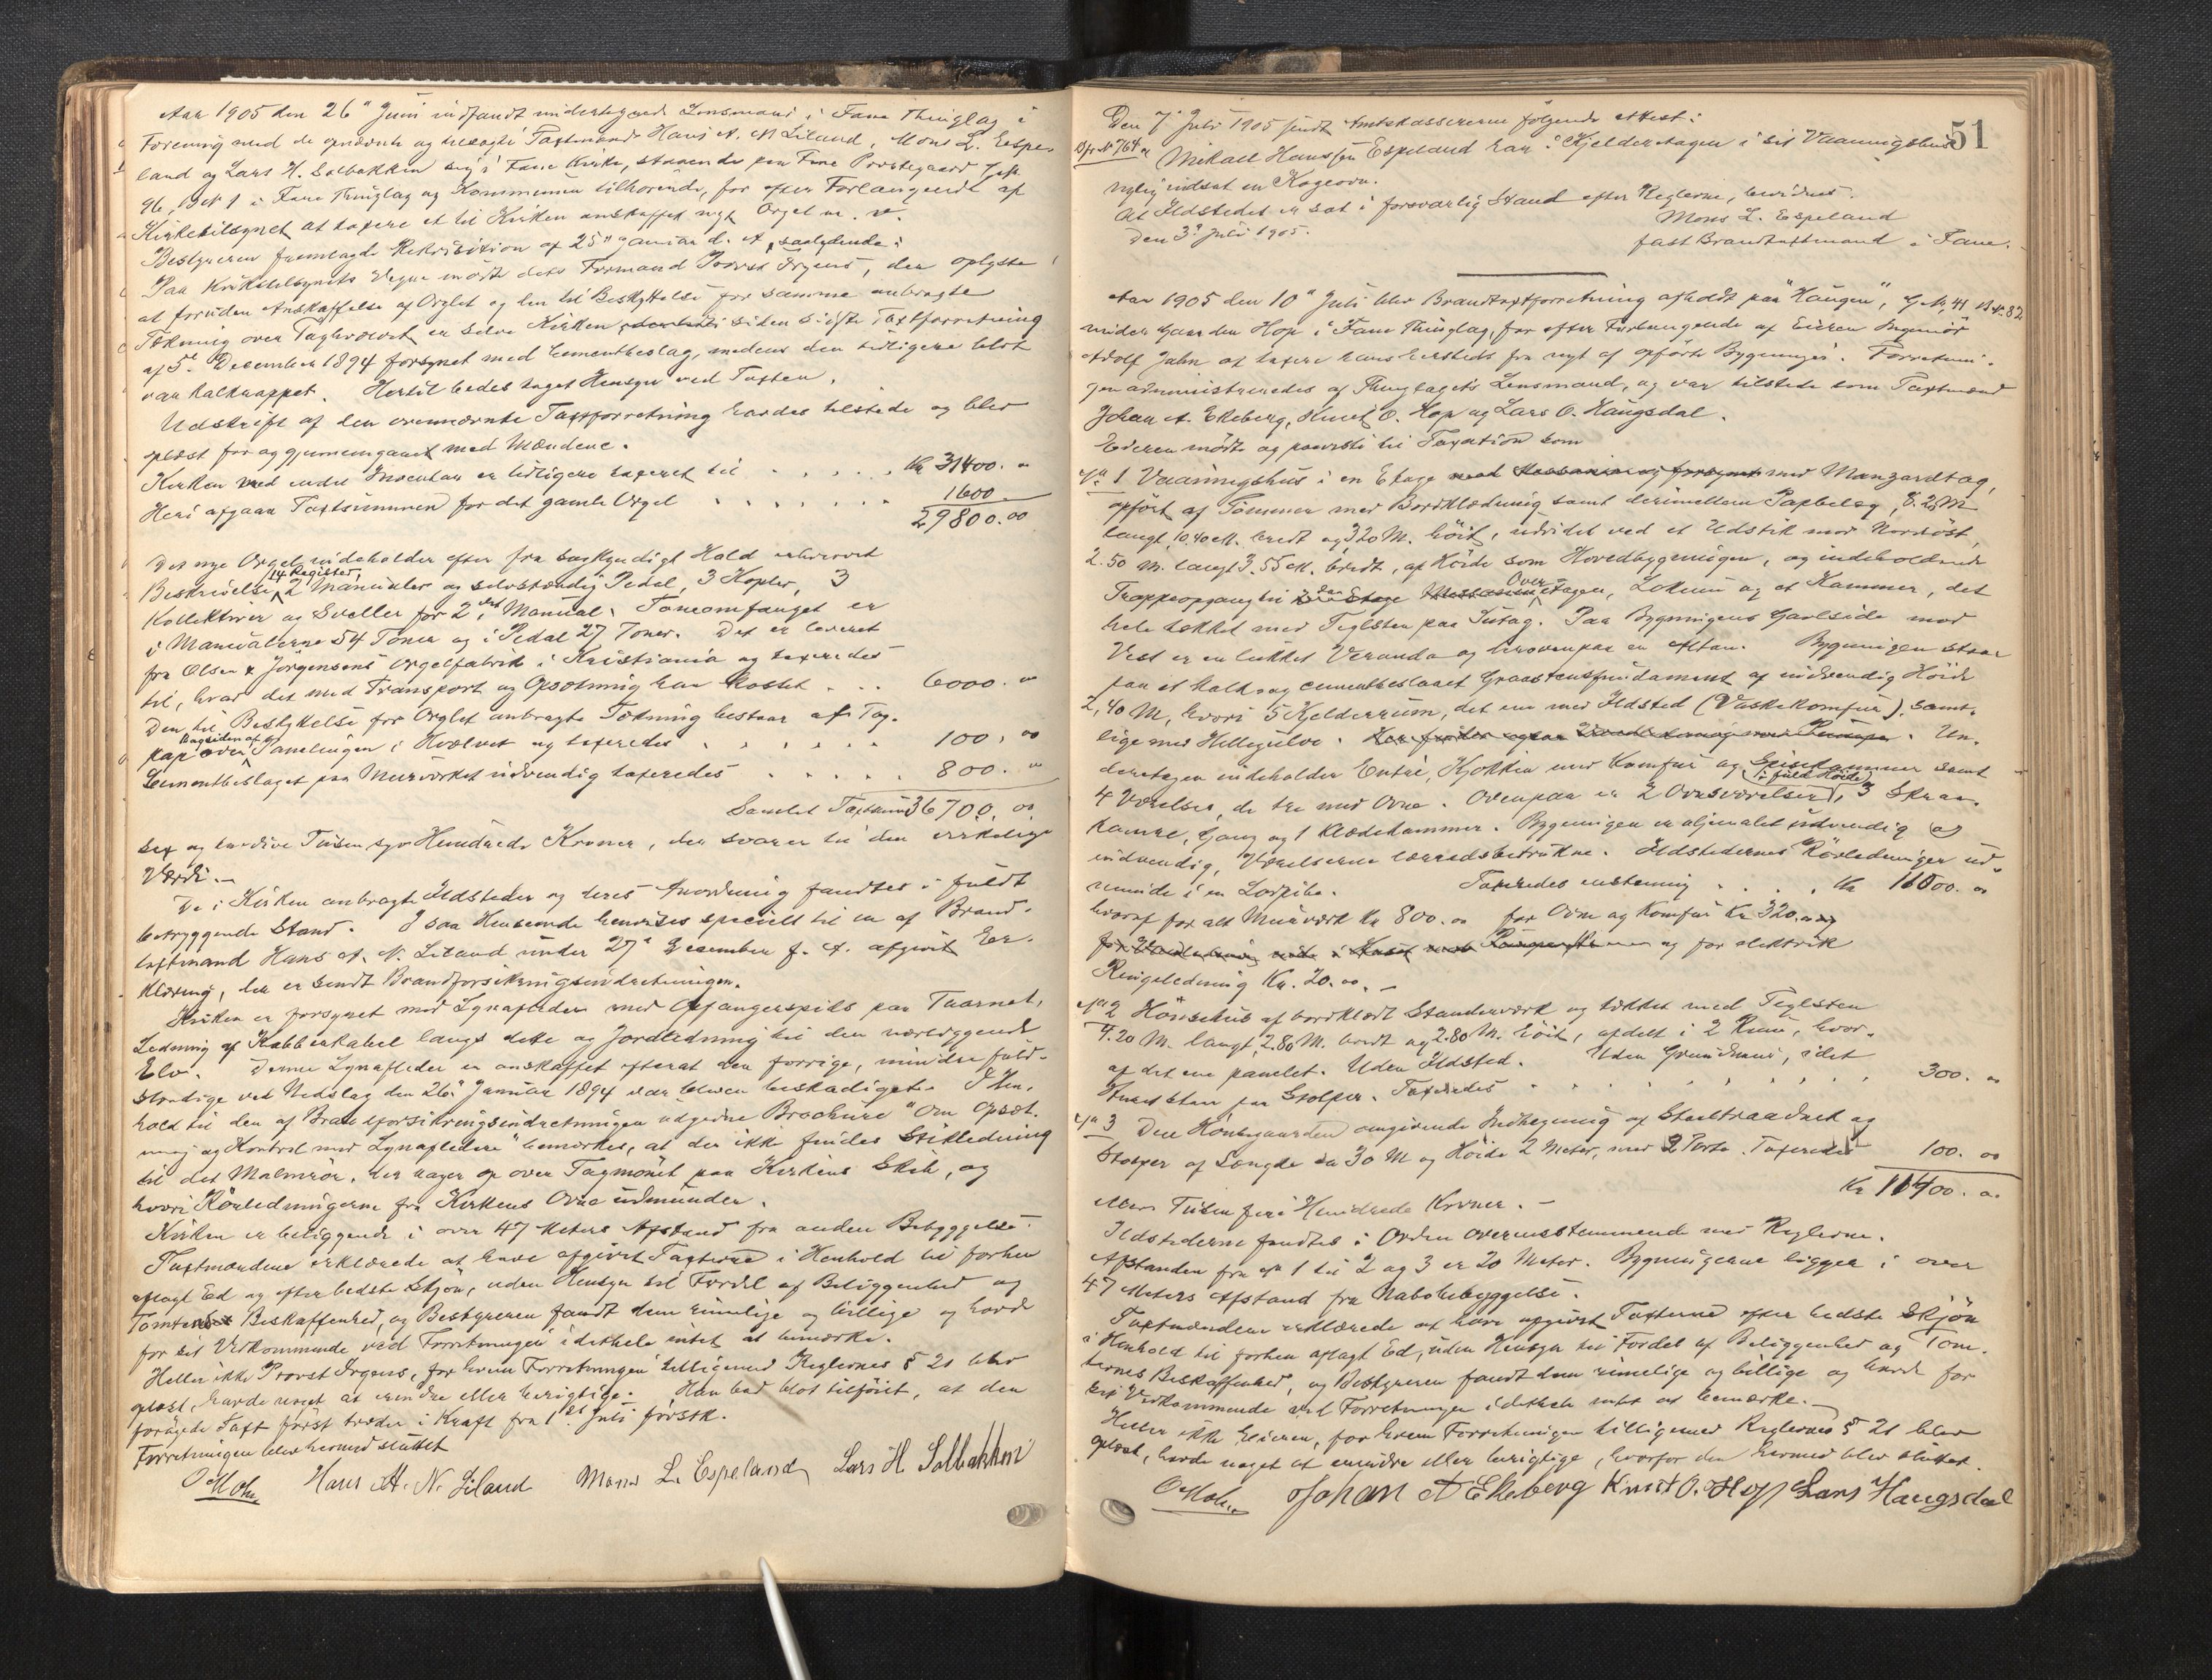 Aar 1905 den 26de Juni indfandt undertegnede Lensmand i Fane Thinglag i
Forening med de opnævnte og beedigede Taxtmænd Hans A. N. Liland, Mons L. Espe-
land og Lars H. Solbakken sig i Fane Kirke, staaende paa Fane Prestegaard G.№
96, B.№ 1 i Fane Thinglag og Kommunen tilhørende, for efter Forlangende af
Kirketilsynet at taxere et til Kirken anskaffet nyt Orgel m. v.
Bestyreren fremlagde Rekvisition af 25de Januar d. A. saalydende:
Paa Kirketilsynets Vegne mødte dets Formand Provst Irgens, der oplyste
at foruden Anskaffelse af Orglet og den til Beskyttelse for samme anbragte
Tækning over Taghvælvet er selve Kirken siden sidste Taxtforretning
af 5te December 1894 forsynet med Cementbeslag, medens den tidligere blot
var kalkrappet. Hertil bedes taget Hensyn ved Taxten.
Udskrift af den ovennævnte Taxtforretning havdes tilstede og blev
oplæst for og gjennemgaaet med Mændene.
Kirken med endel Inventar er tidligere taxeret til . . . . Kr 31400. "
Heri afgaar Taxtsummen for det gamle Orgel . . . . . . 1600
29800.00
Det nye Orgel indeholder efter fra sagkyndigt Hold erhvervet
Beskrivelse 14 Register, 2 Manualer og selvstændig Pedal, 3 Kopler, 3
Kollektiver og Sveller for 2det Manual. Toneomfanget er
i Manualerne 54 Toner og i Pedal 27 Toner. Det er leveret
fra Olsen & Jørgensens Orgelfabrik i Kristiania og taxeredes
til, hvad det med Transport og Opsætning har kostet . . . 6000. "
Den til Beskyttelse for Orglet anbragte Tækning bestaar af Tag-
pap over Bagsiden af Panelingen i Hvælvet og taxeredes . . . . . . 100. "
Cementbeslaget paa Murværket udvendig taxeredes . . . . . 800. "
Samlet Taxtsum 36700. 00
Sex og tredive Tusen, syv Hundrede Kroner, der svarer til den virkelige
Værdi.—
De i Kirken anbragte Ildsteder og deres Anordning fandtes i fuldt
betryggende Stand. I saa Henseende henvises specielt til en af Brand-
taxtmand Hans A. N. Liland under 27de December f. A. afgivet Er-
klæring, der er sendt Brandforsikringsindretningen.
Kirken er forsynet med Lynafleder med Opfangerspids paa Taarnet,
Ledning af Kobberkabel langs dette og Jordledning til den nærliggende
Elv. Denne Lynafleder er anskaffet efterat den forrige, mindre fuld-
stændige ved Nedslag den 26de Januar 1894 var bleven beskadiget. I Hen-
hold til den af Brandforsikringsindretningen udgivne Brochure "Om Opsæt-
ning og Kontrol med Lynafledere" bemærkes, at der ikke findes Stikledning
til det Malmrør, der rager op over Tagmønet paa Kirkens Skib, og
hvori Rørledningerne fra Kirkens Ovne udmunder.
Kirken er beliggende i over 47 Meters Afstand fra anden Bebyggelse.
Taxtmændene erklærede at have afgivet Taxterne i Henhold til forhen
aflagt Ed og efter bedste Skjøn, uden Hensyn til Fordel af Beliggenhed og
Tomtens Beskaffenhed, og Bestyreren fandt dem rimelige og billige og havde
for sit Vedkommende ved Forretningen idethele intet at bemærke.
Heller ikke Provst Irgens, for hvem Forretningen tilligemed Reglernes § 21 blev
oplæst, havde noget at erindre eller berigtige. Han bad blot tilføiet, at den
forøgede Taxt først træder i Kraft fra 1ste Juli førstk.
Forretningen blev hermed sluttet
O Mohn Hans A. N. Liland Mons L. Espeland Lars H Solbakken
51
Den 7de Juli 1905 sendt Amtskassereren følgende Attest:
№ 764 Mikael Hanssen Espeland har i Kjelderetagen i sit Vaaningshus
nylig indsat en Kogeovn.
At Ildstedet er sat i forsvarlig Stand efter Reglerne, bevidnes.
Den 3die Juli 1905. Mons L. Espeland
fast Brandtaxtmand i Fane.
Aar 1905 den 10de Juli blev Brandtaxtforretning afholdt paa "Haugen", G.№ 41, B.№ 82
under Gaarden Hop i Fane Thinglag, for efter Forlangende af Eieren Ingeniør
Adolf Jahn at taxere hans hersteds fra nyt af opførte Bygninger. Forretnin-
gen administreredes af Thinglagets Lensmand, og var tilstede som Taxtmænd
Johan A. Ekeberg, Knut O. Hop og Lars O. Haugsdal.
Eieren mødte og paaviste til Taxation som
№ 1 Vaaningshus i en Etage med Mansardtag,
opført af Tømmer med Bordklædning samt derimellem Papbelæg, 8.20 M
langt, 10.40 M. bredt og 3.20 M. høit, udvidet ved et Udstik mod Nordøst,
2.50 M. langt 3.55 M. bredt, af Høide som Hovedbygningen, og indeholdende
Trappeopgang til Overetagen, Lokum og et Kammer, det
hele tækket med Teglsten paa Sutag. Paa Bygningens Gavlside mod
Vest er en lukket Veranda og derovenpaa en Altan. Bygningen staar
paa et kalk- og cementbeslaaet Graastensfundament af indvendig Høide
2,40 M, hvori 5 Kjelderrum, det ene med Ildsted (Vaskekomfur), samt-
lige med Hellegulve. Un-
deretagen indeholder Entré, Kjøkken med Komfur og Spisekammer samt
4 Værelser, de tre med Ovne. Ovenpaa er 2 Ovnsværelser (i fuld Høide), 3 Skraa-
kamre, Gang og 1 Klædekammer. Bygningen er oljemalet udvendig og
indvendig, Værelserne lærredsbetrukne. Ildstedernes Rørledninger ud-
munde i en Lodpibe. Taxeredes enstemmig . . . . Kr 11000. 00
hvoraf for alt Murværk Kr 800.00 for Ovne og Komfur Kr 320.00
og for elektrisk
Ringeledning Kr. 20.00.—
№ 2 Hønsehus af bordklædt Standerværk og tækket med Teglsten
4.20 M. langt, 2.80 M. bredt og 2.80 M. høit, afdelt i 2 Rum, hvor-
af det ene panelet. Uden Ildsted. Uden Grundmur, idet
Huset staar paa Stolper. Taxeredes . . . . . . . . 300. 00
№ 3 Den Hønsegaarden omgivende Indhegning af Staaltraadnet og
Stolper af Længde ca 30 M og Høide 2 Meter, med 2 Porte. Taxeredes 100. 00
Kr 11400. 00
Elleve Tusen fire Hundrede Kroner.—
Ildstederne fandtes i Orden overensstemmende med Reglerne.
Afstanden fra № 1 til 2 og 3 er 20 Meter. Bygningerne ligger i over
47 Meters Afstand fra Nabobebyggelse.
Taxtmændene erklærede at have afgivet Taxterne efter bedste Skjøn
i Henhold til forhen aflagt Ed, uden Hensyn til Fordel af Beliggenhed og Tom-
ternes Beskaffenhed, og Bestyreren fandt dem rimelige og billige og havde for
sit Vedkommende ved Forretningen idethele intet at bemærke.—
Heller ikke Eieren, for hvem Forretningen tilligemed Reglernes § 21 blev
oplæst, havde noget at erindre eller berigtige, hvorfor den hermed blev sluttet.
O Mohn Johan A Ekeberg Knut O. Hop Lars Haugsdal